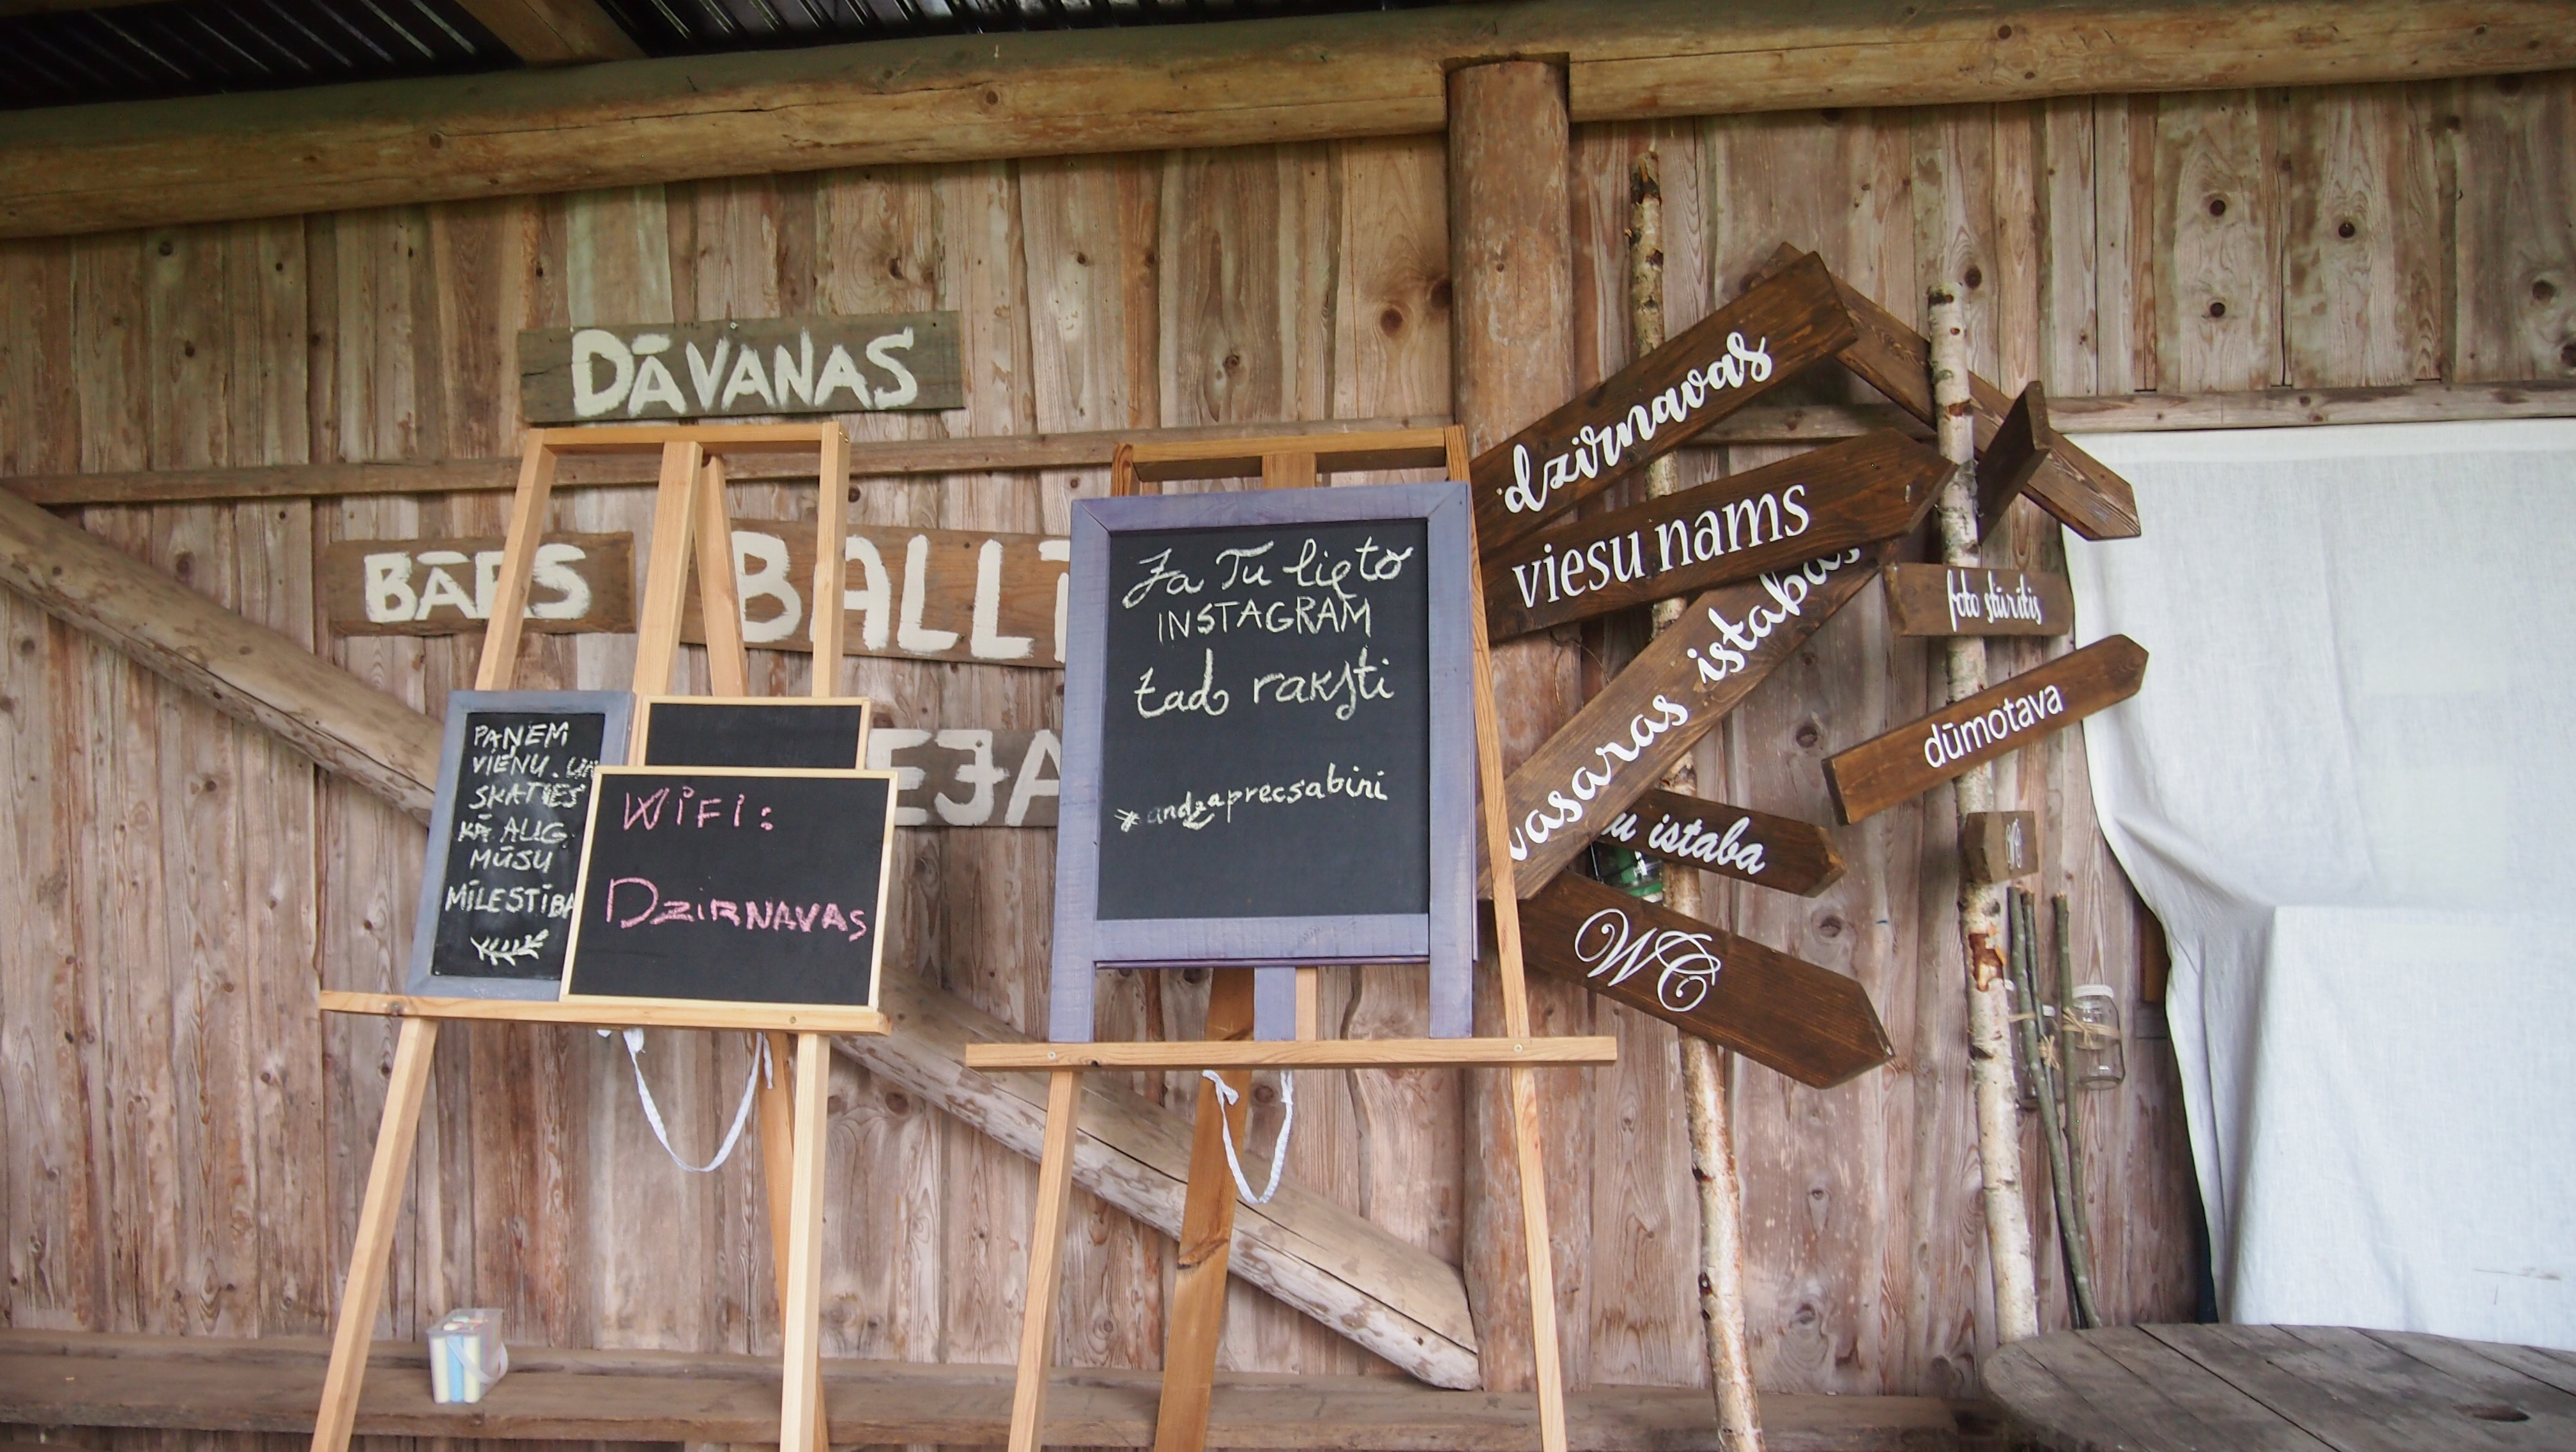 DĀVANAS
BĀRS
BALL
EJA
PAŅEM
VIENU UN
SKATIES
KĀ AUG
MŪSU
MĪLESTĪBA
WiFi:
DZIRNAVAS
Ja Tu lieto
INSTAGRAM
tad raksti
#andzaprecsabini
dzirnavas
viesu nams
vasaras istabas
foto stūrītis
dūmotava
istaba
WC